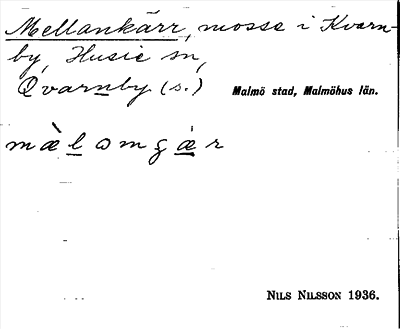 Mellankärr, mosse i Kvarn-
by, Husie sn,
Qvarnby (s.) Malmö stad, Malmöhus län.
mæ̀lɑmgæ̀r
NILS NILSSON 1936.